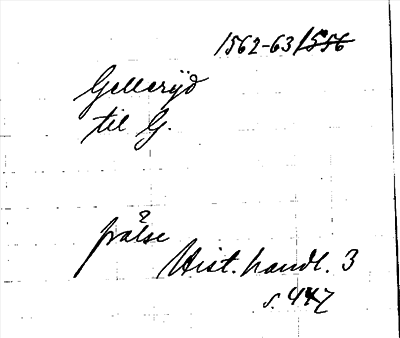 1562-63/1556
Gelleryd
til G.
frälse
Hist. handl. 3
s. 447